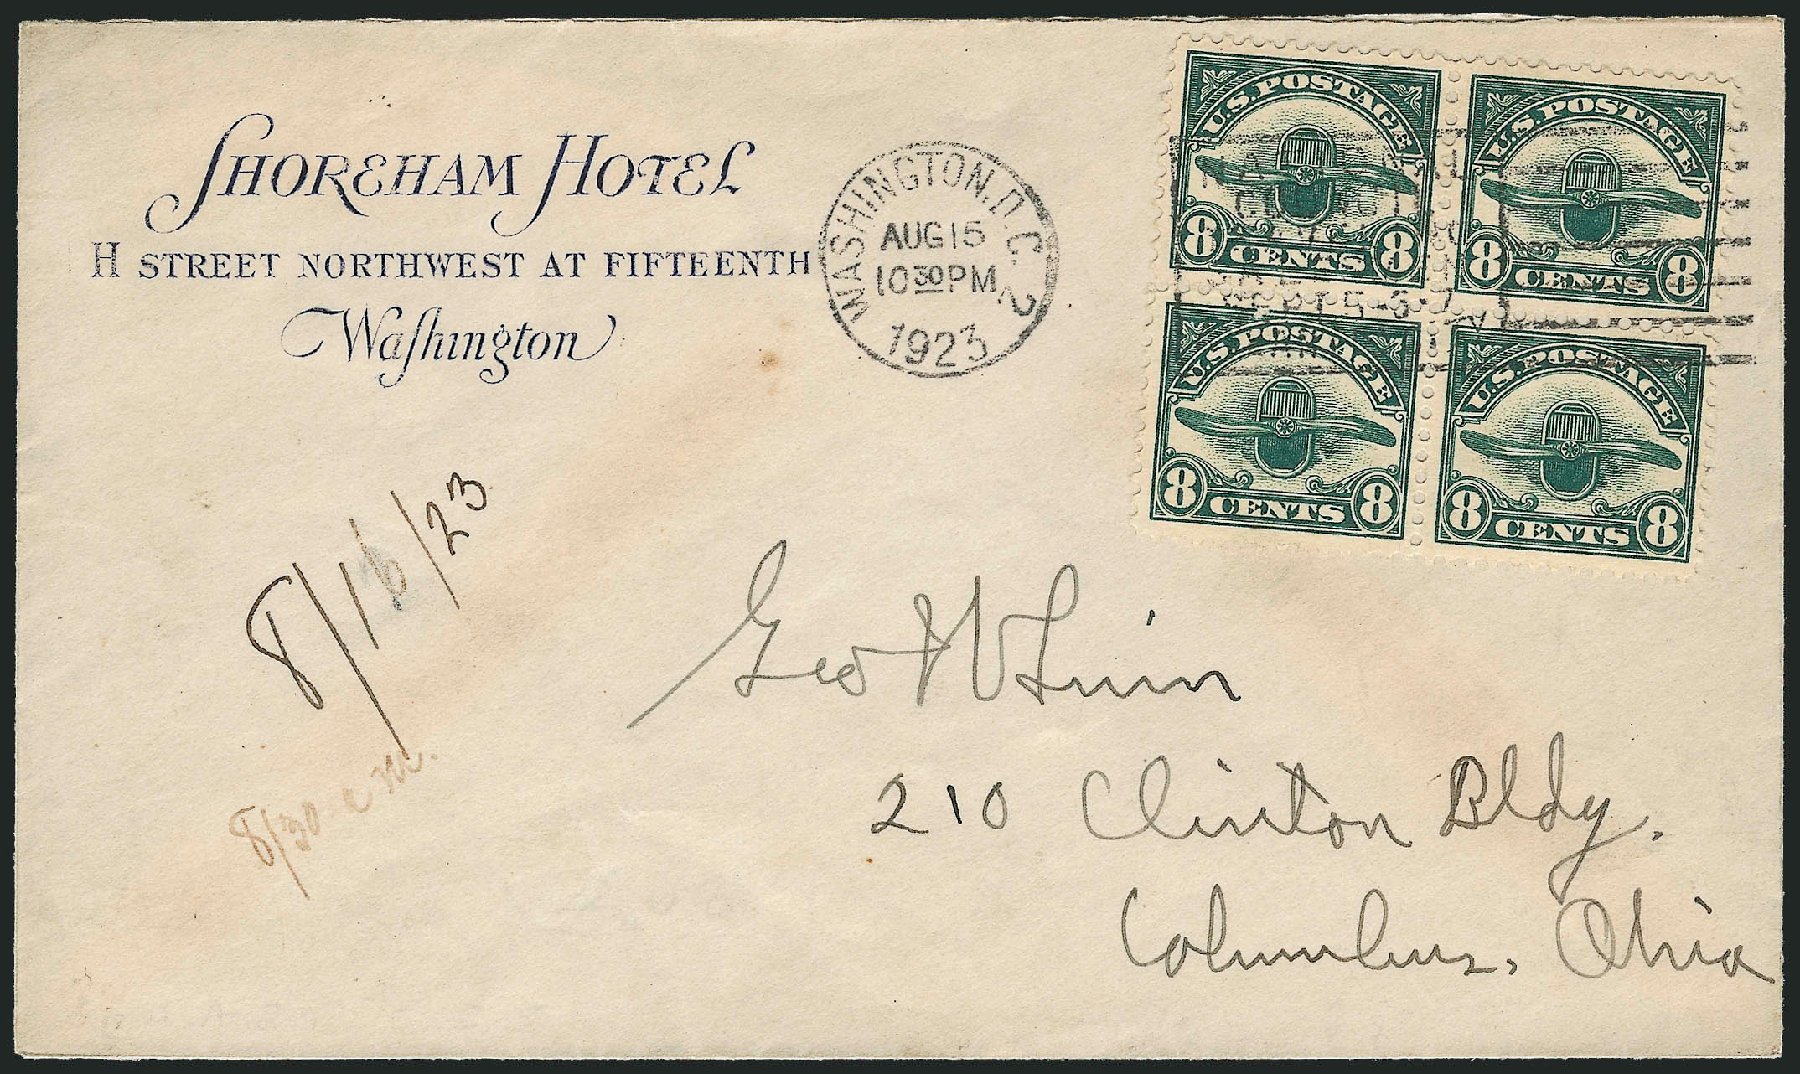 SHOREHAM HOTEL
H STREET NORTHWEST AT FIFTEENTH
Washington
WASHINGTON, D.C. 2
AUG 15
10 30 PM
1923
U.S. POSTAGE
8 CENTS 8
U.S. POSTAGE
8 CENTS 8
U.S. POSTAGE
8 CENTS 8
U.S. POSTAGE
8 CENTS 8
8/16/23
8/30
Geo
210 Clinton Bldg.
Columbus, Ohio